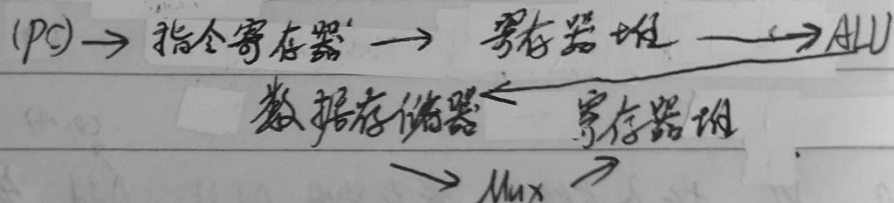 (PC) → 指令寄存器 → 寄存器堆 → ALU
数据存储器 寄存器堆
→ Mux ↗